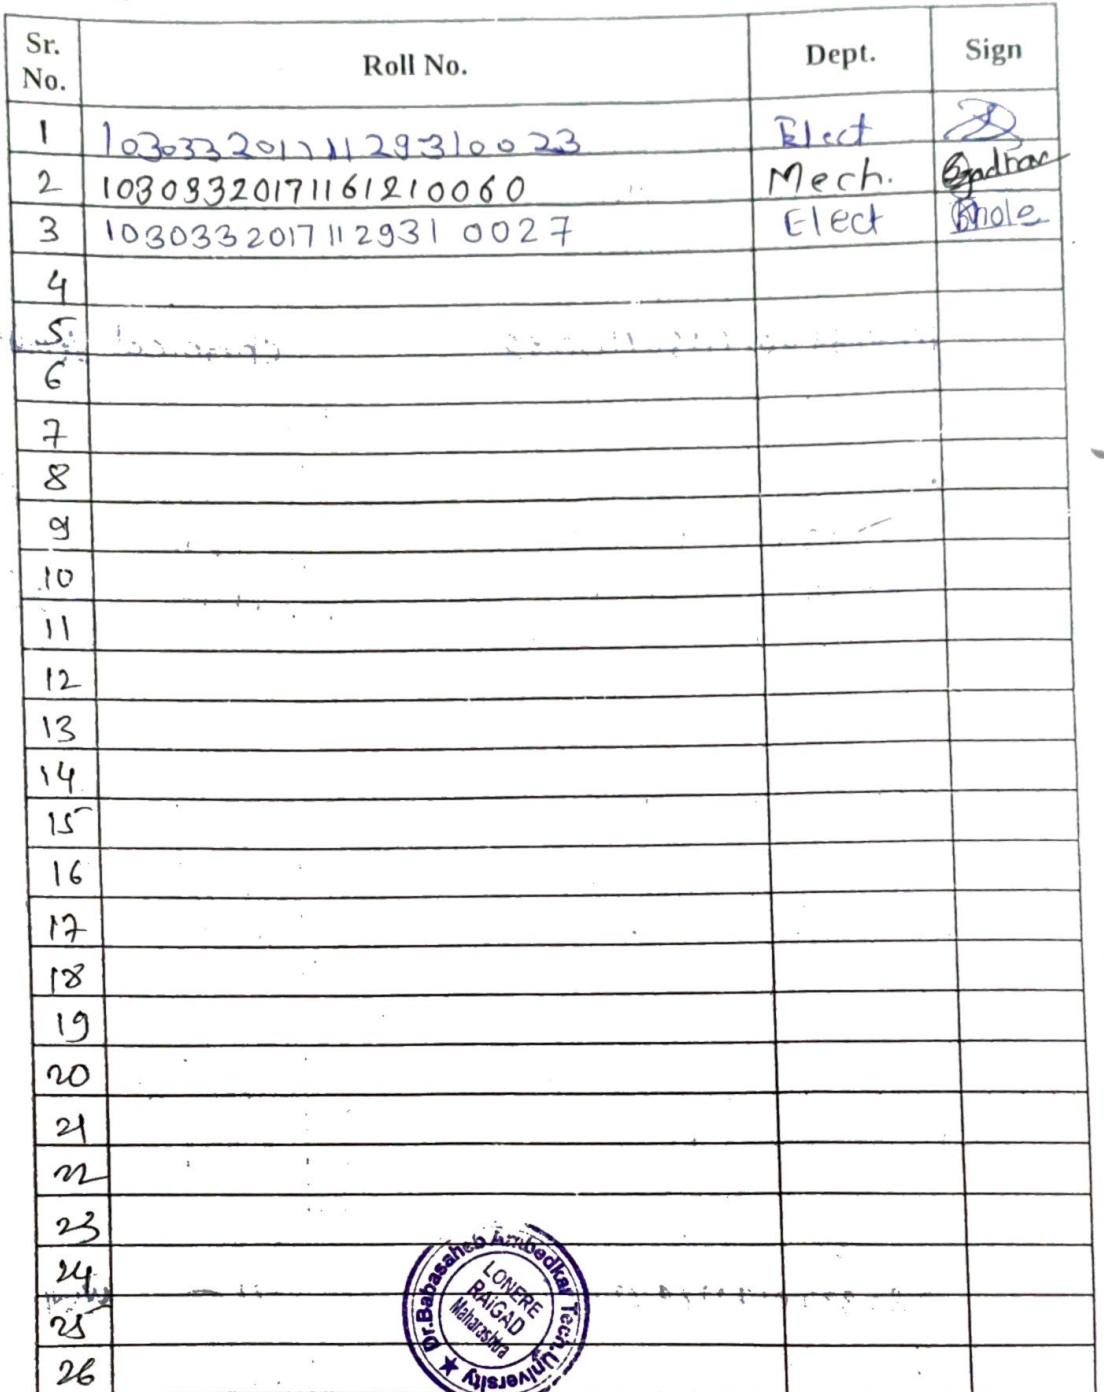 Sr. No. Roll No. Dept. Sign
1 10303320171129310023 Elect
2 10303320171161210060 Mech.
3 10303320171129310027 Elect Bhole
4
5
6
7
8
9
10
11
12
13
14
15
16
17
18
19
20
21
22
23
24
25
26
Dr.Babasaheb Ambedkar Tech.University
LONERE
RAiGAD
Maharashtra